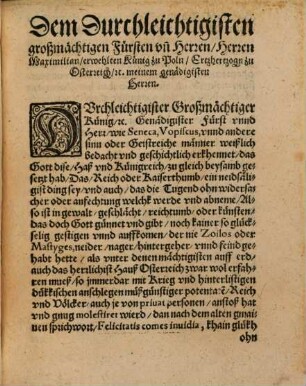 Dem Durchleichtigisten
großmächtigen Fürsten vñ Herren/ Herren
Maximilian/ erwehlten Künig zu Poln/ Ertzhertzogn zu
Osterreich/ ꝛc. meinem genädigisten
Herren.
DVrchleichtigister Großmächtiger
Künig/ ꝛc. Genädigister Fürst vnnd
Herr/ wie Seneca, Vopiscus, vnnd andere
sinn oder Geistreiche männer weißlich
Bedacht vnd geschichtlich erkhennet/ das
Gott dise/ Haß vnd Künigreich/ zu gleich beysamb gese-
tzt hab/ Das/ Reich oder Kaiserthumb/ ein neidsäli-
gist ding sey/ vnd auch/ das die Tugend ohn widersa-
cher oder anfechtung welchk werde vnd abneme/ Al-
so ist in gewalt/ geschlächt/ reichtumb/ oder künsten/
das doch Gott günnet vnd gibt/ noch kainer so glück-
selig gestigen vnnd auffkomen/ der nie Zoilos oder
Mastyges, neider/ nager/ hintergeher/ vnnd feind ge-
habt hette/ als vnter denen mächtigisten auff erd/
auch das herrlichist Hauß Osterreich zwar wol erfah-
ren mueß/ so jmmerdar mit Krieg vnd hinterlistigen
dükkischen anschlegen mißgünstiger potentatē/ Reich
vnd Völcker/ auch je von priuat personen/ anstoß hat
vnd gnug molestiret wierd/ dan nach dem alten gmai-
nen sprichwort/ Felicitatis comes inuidia, khain glükh
ohn